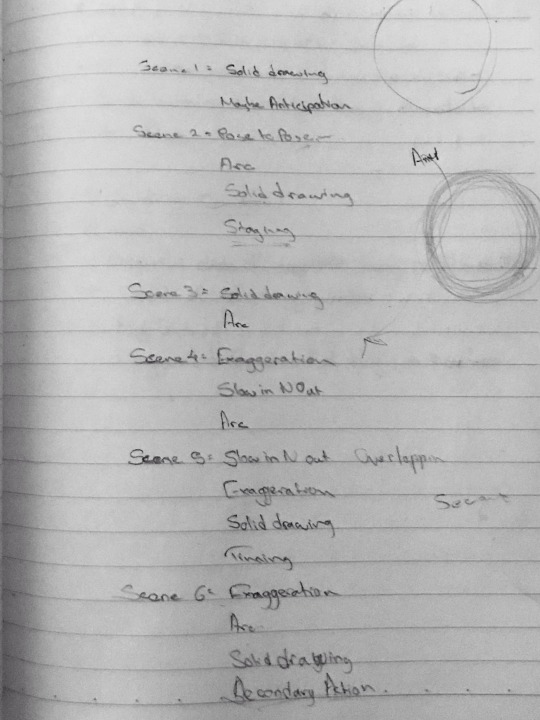 Scene 1 = Solid drawing
Maybe Anticipation
Scene 2 = Pose to Pose
Arc
Solid drawing
Staging
Scene 3 = Solid drawing
Arc
Scene 4 = Exaggeration
Slow in N Out
Arc
Scene 5 = Slow in N out Overlappin
Exaggeration
Solid drawing
Timing
Scene 6 = Exaggeration
Arc
Solid drawing
Secondary Action